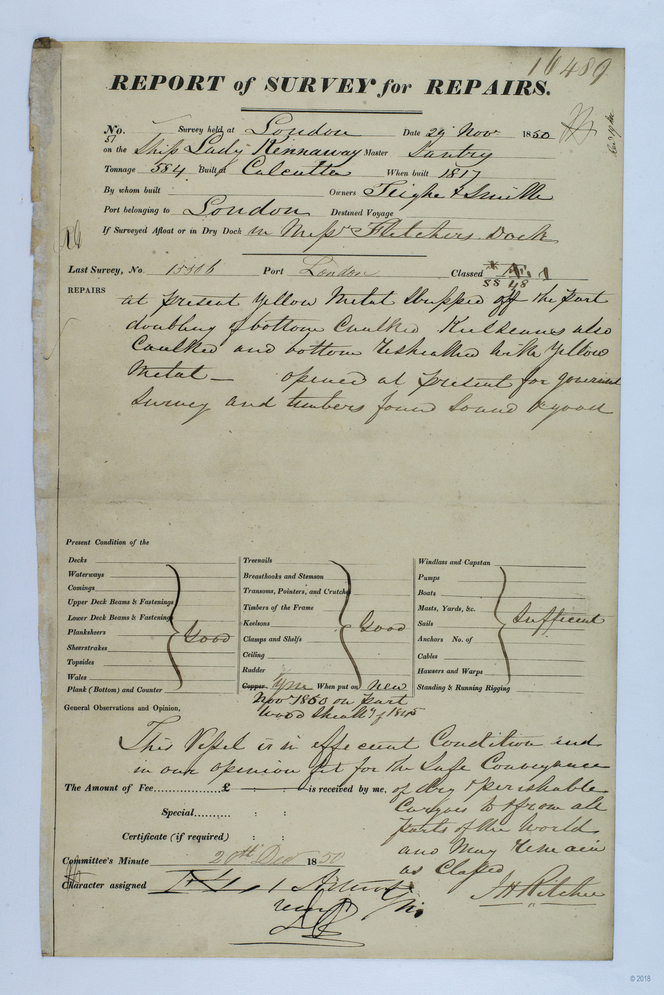 16489
REPORT of SURVEY for REPAIRS.
No. 57 Survey held at London Date 29 Nov 1850
on the Ship Lady Kennaway Master Santry
Tonnage 584 Built at Calcutta When built 1817
By whom built Owners Teighe & Smith
Port belonging to London Destined Voyage
If Surveyed Afloat or in Dry Dock in Messrs Fletchers Dock
Last Survey, No. 15506 Port London Classed
REPAIRS at present Yellow Metal stripped off the part
doubling of bottom Caulked also
Caulked and bottom resheathed with Yellow
Metal — opened at present for general
Survey and timbers found Sound & good
Present Condition of the
Decks
Waterways
Comings
Upper Deck Beams & Fastenings
Lower Deck Beams & Fastenings
Planksheers
Sheerstrakes
Topsides
Wales
Plank (Bottom) and Counter
Good
Treenails
Breasthooks and Stemson
Transoms, Pointers, and Crutches
Timbers of the Frame
Keelsons
Clamps and Shelfs
Ceiling
Rudder
Good
Copper Ym When put on New
Nov 1850 on part
Wood Sheathg of 1845
Windlass and Capstan
Pumps
Boats
Masts, Yards, &c.
Sails
Anchors No. of
Cables
Hawsers and Warps
Standing & Running Rigging
Sufficient
General Observations and Opinion,
This Vessel is in effecient Condition and
in our opinion fit for the Safe Conveyance
The Amount of Fee.................£ is received by me, of dry & perishable
Cargoes to & from all
Special......... : :
parts of the World
Certificate (if required) : :
and May remain
Committee's Minute 20th Dec 1850
as Classed
Character assigned
J H Ritchie
© 2018